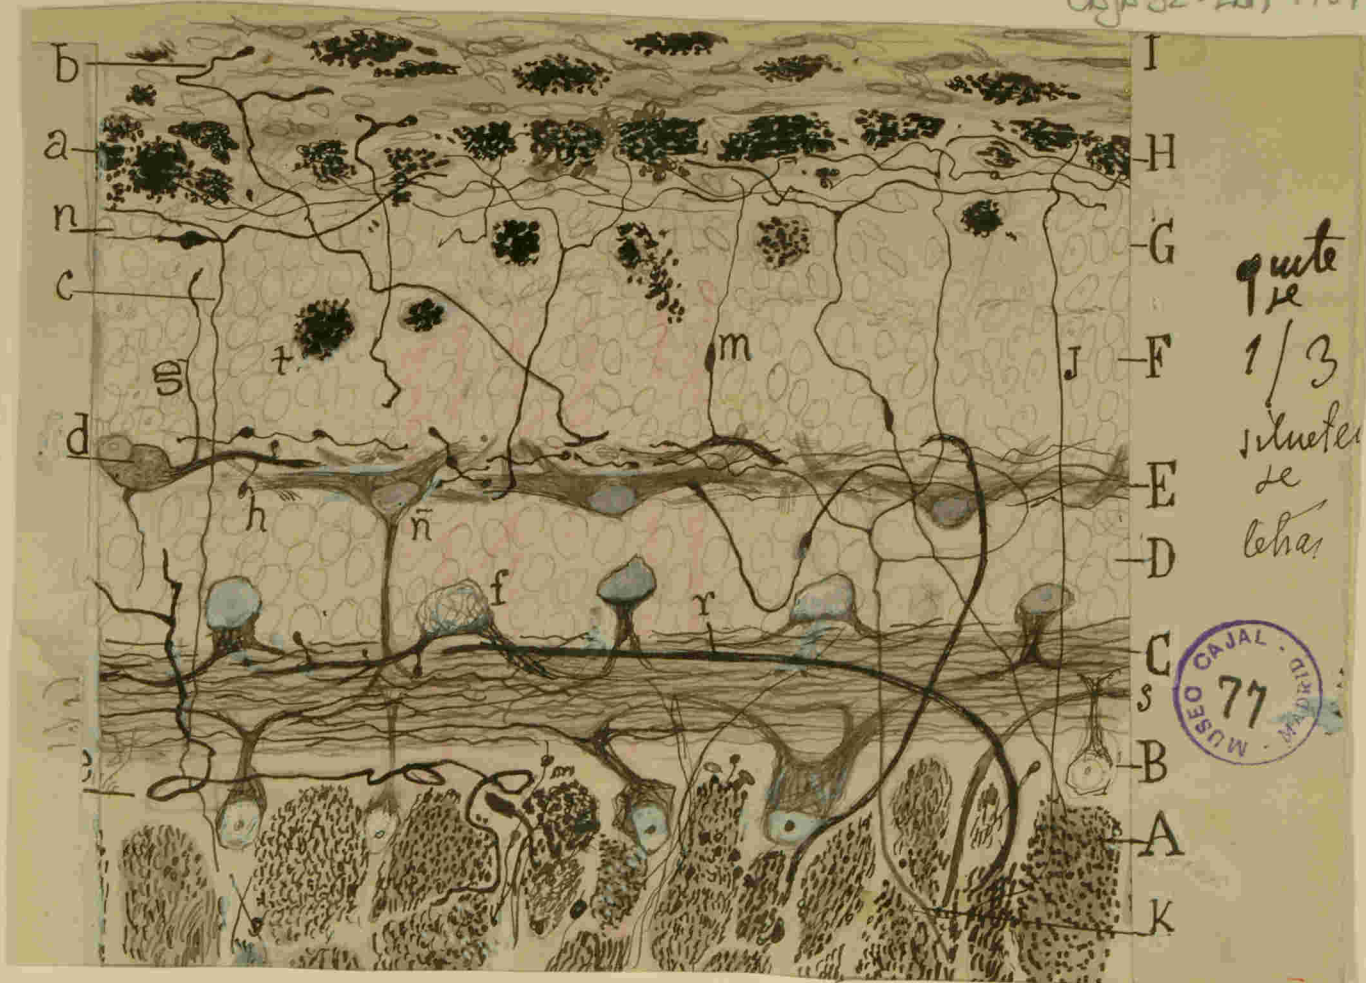 b
a
n
c
g
d
h
ñ
t.
m
J
f
r
e
I
H
G
F
E
D
C
s
B
A
K
quite
se
1/3
siluetas
de
letras
MUSEO CAJAL · MADRID ·
77